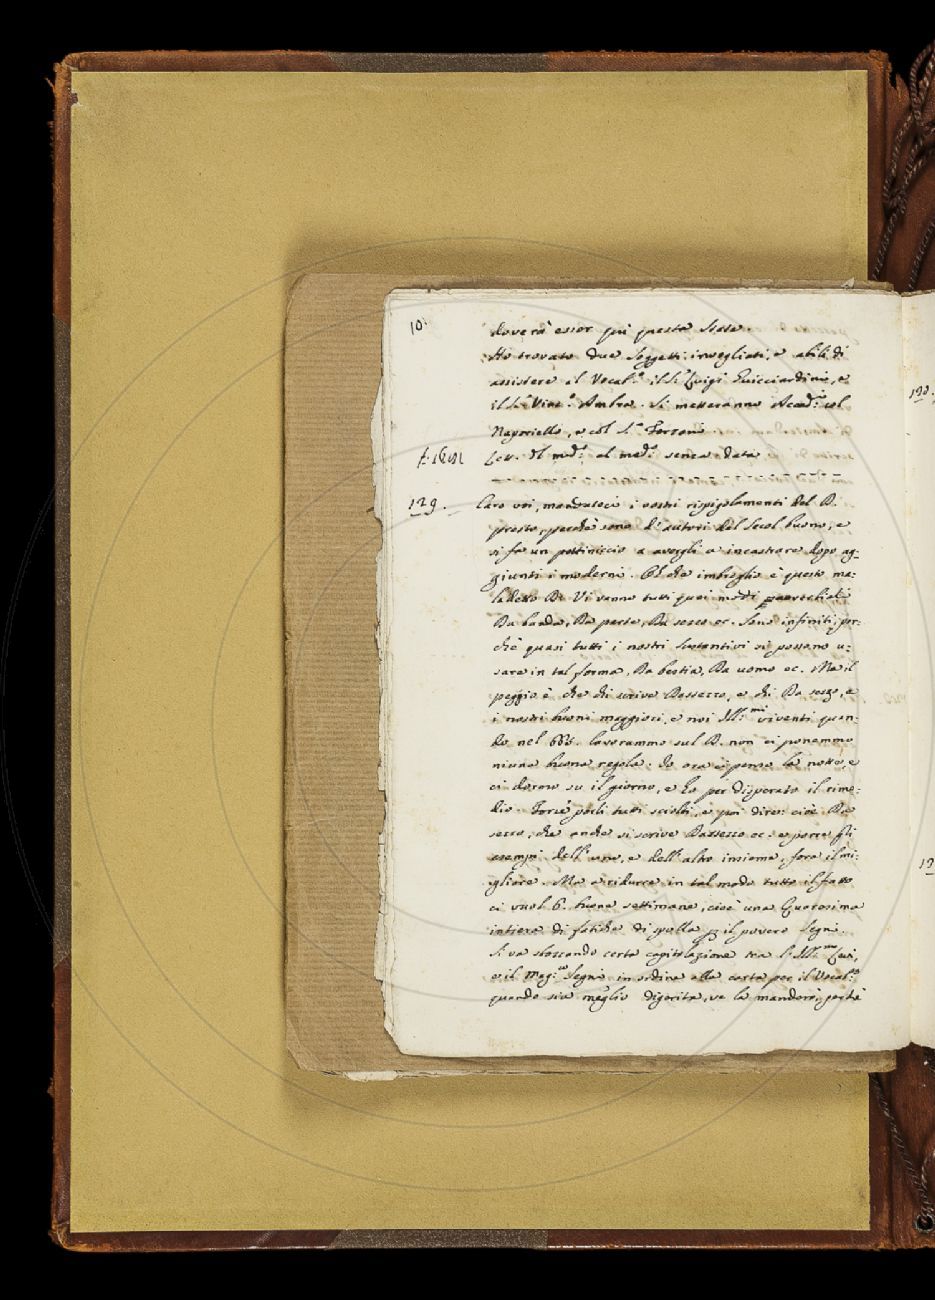 10.
doverà esser più presta Siete.
Ho trovato due Soggetti invogliati, e abili di
assistere al Vocab.º il S.r Luigi Guicciardini, e
il S.r Vinc.º Ambra. Si metteranno Accad.ci col
Naporiello, e col S.r Forzoni.
Let. del med.º al med.º senza data
129. Caro voi, mandateci i vostri rispigolamenti del B.
presto, perchè sono d'autori del Secol buono, e
si fa un pasticcio a avergli a incastrare dopo ag-
giunti i moderni. Oh che imbroglio è questo ma-
ladetto B! Vi vanno tutti quei modi proverbiali
Da banda, Da parte, Da sesso ec. Sono infiniti, per-
chè quasi tutti i nostri Sustantivi si possono u-
sare in tal forma, Da bestia, Da uomo ec. Ma il
peggio è che chi scrive Dassezzo, e chi Da sezzo, e
i nostri buoni maggiori, e noi Ill.mi viventi quan-
do nel 666. lavorammo sul D. non ci ponemmo
niuna buona regola. Io ora ci penso la notte, e
ci dormo su il giorno, e ho per disperato il rime-
dio. Forse porli tutti sciolti, e poi dire: cioè Da
sezzo, che anche si scrive Dassezzo ec. e porre gli
esempi dell'uno, e dell'altro insieme, fora il mi-
gliore. Ma a ridurre in tal modo tutto il fatto
ci vuol 6. buone settimane, cioè una Quaresima
intiera di fatiche di spalla per il povero Segni.
Si va abbozzando certa capitolazione tra l'Ill.mo
e il Mag.co Segni in ordine alla carta per il Vocab.º
quando sia meglio digerita, ve la manderò, perchè
130.